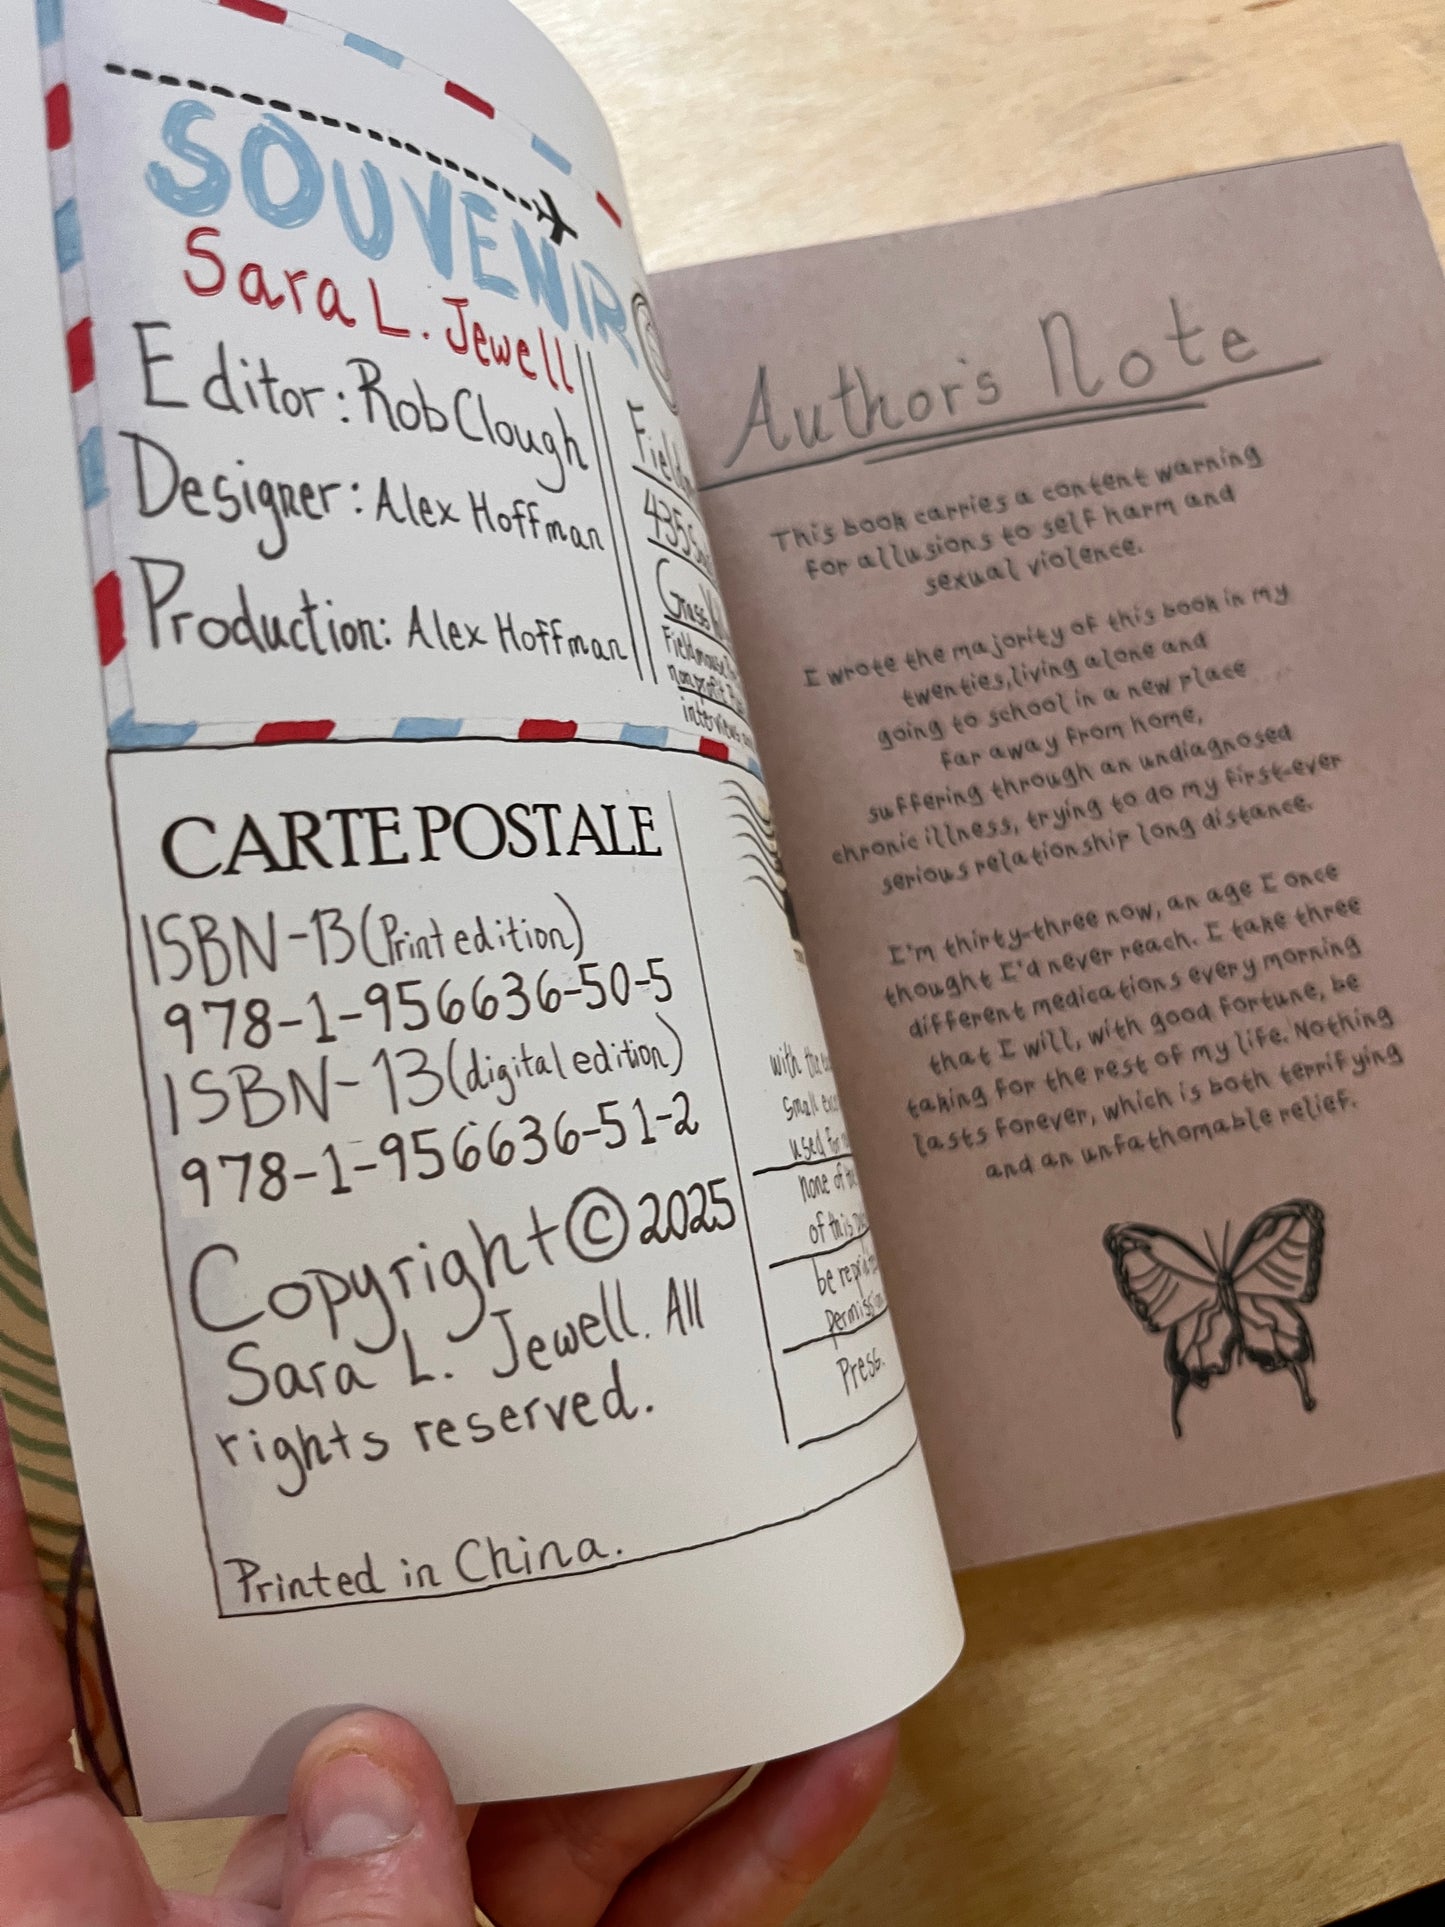 SOUVENIR
Sara L. Jewell
Editor: Rob Clough
Designer: Alex Hoffman
Production: Alex Hoffman
Fieldmouse
nonprofit
interviews
CARTE POSTALE
ISBN-13 (Print edition)
978-1-956636-50-5
ISBN-13 (digital edition)
978-1-956636-51-2
Copyright © 2025
Sara L. Jewell. All
rights reserved.
Printed in China.
with the
small
used for
none of
of this
be
Press.
Author's Note
This book carries a content warning
for allusions to self harm and
sexual violence.
I wrote the majority of this book in my
twenties, living alone and
going to school in a new place
far away from home,
suffering through an undiagnosed
chronic illness, trying to do my first-ever
serious relationship long distance.
I'm thirty-three now, an age I once
thought I'd never reach. I take three
different medications every morning
that I will, with good fortune, be
taking for the rest of my life. Nothing
lasts forever, which is both terrifying
and an unfathomable relief.